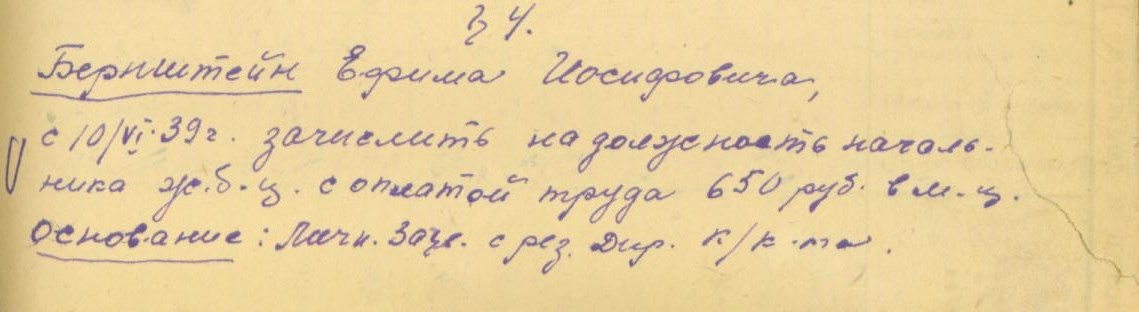 § 4.
Бернштейн Ефима Иосифовича,
с 10/VI-39г. зачислить на должность началь-
ника ж.б.ц. с оплатой труда 650 руб. в м-ц.
Основание: Личн. Заяв. с рез. Дир. к/к-та.